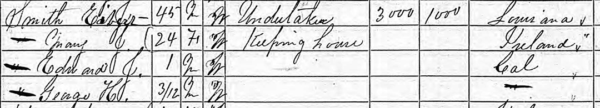 Smith 45 M W Undertaker 3000 1000 Louisiana
— 24 F W Keeping house Ireland "
— Edward J. 1 M W Cal
— George H. 3/12 M W —